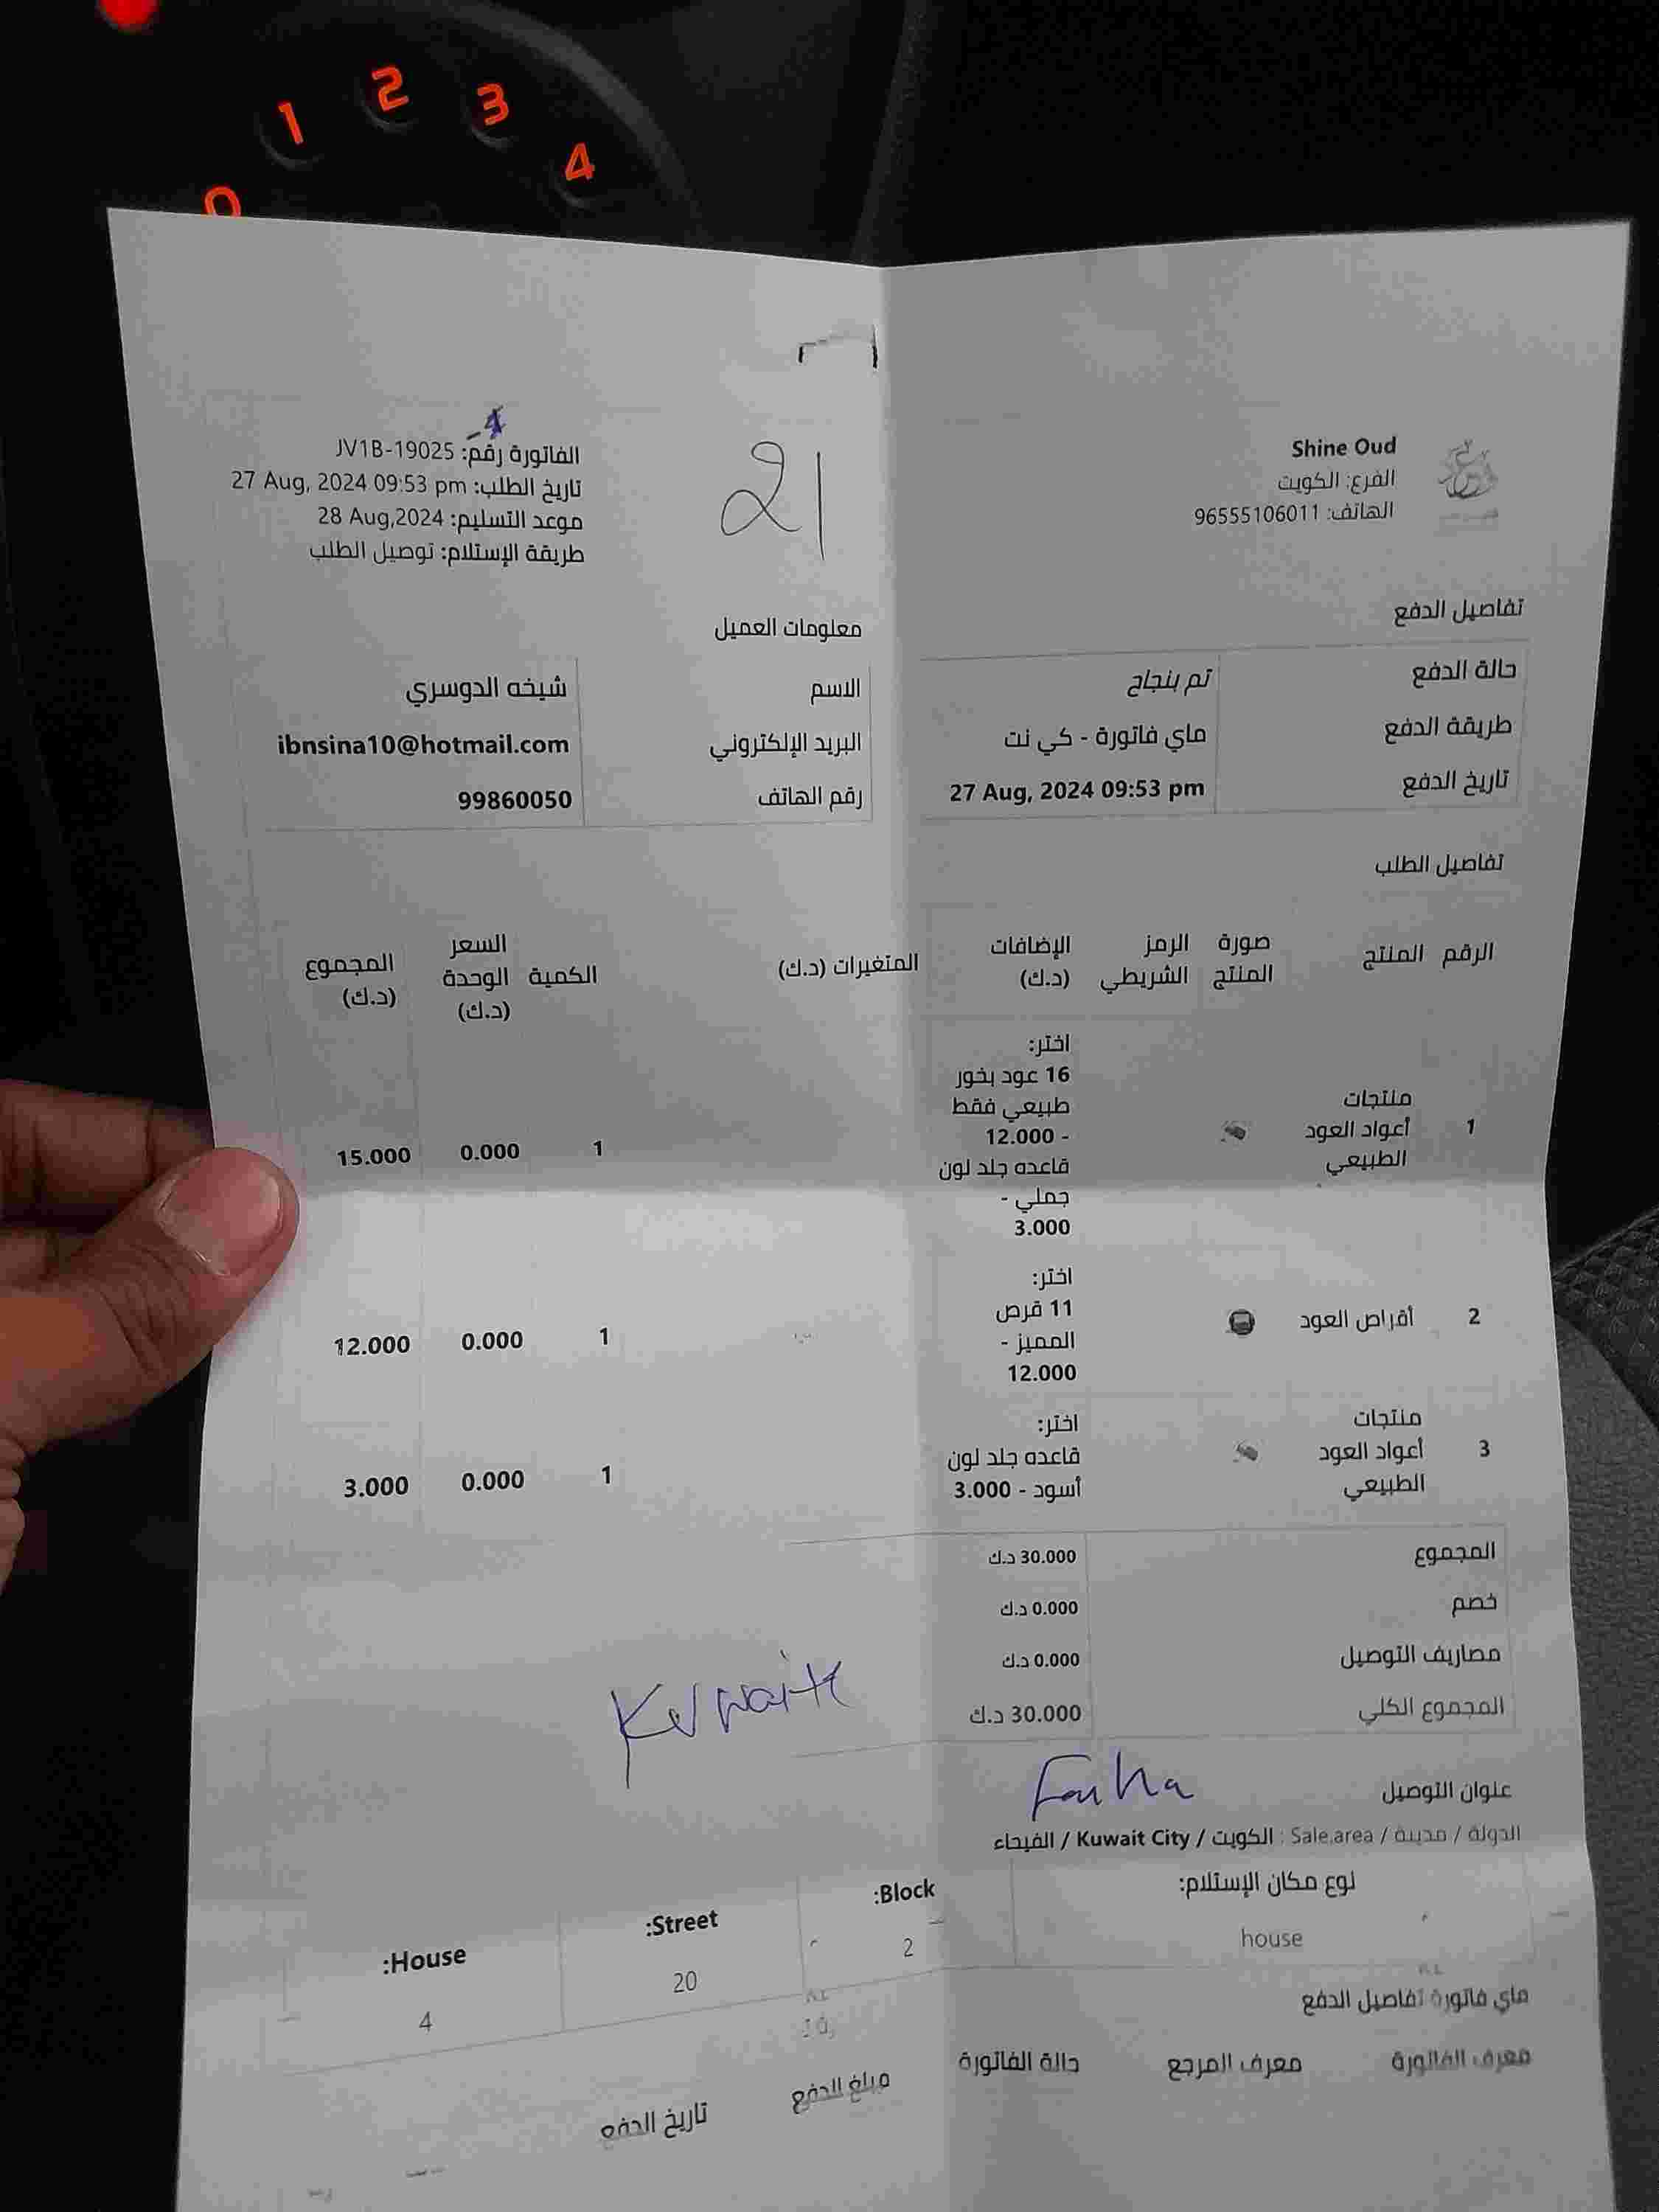 0
1
2
3
4
Shine Oud
الفرع: الكويت
الهاتف: 96555106011
21
4
الفاتورة رقم: JV1B-19025
تاريخ الطلب: 27 Aug, 2024 09:53 pm
موعد التسليم: 28 Aug,2024
طريقة الإستلام: توصيل الطلب
تفاصيل الدفع
حالة الدفع تم بنجاح
طريقة الدفع ماي فاتورة - كي نت
تاريخ الدفع 27 Aug, 2024 09:53 pm
معلومات العميل
الاسم شيخه الدوسري
البريد الإلكتروني ibnsina10@hotmail.com
رقم الهاتف 99860050
تفاصيل الطلب
الرقم المنتج صورة المنتج الرمز الشريطي الإضافات (د.ك) المتغيرات (د.ك) الكمية السعر الوحدة (د.ك) المجموع (د.ك)
1
منتجات
أعواد العود
الطبيعي
اختر:
16 عود بخور
طبيعي فقط
- 12.000
قاعده جلد لون
جملي -
3.000
1 0.000 15.000
2 أقراص العود
اختر:
11 قرص
المميز -
12.000
1 0.000 12.000
3
منتجات
أعواد العود
الطبيعي
اختر:
قاعده جلد لون
أسود - 3.000
1 0.000 3.000
المجموع 30.000 د.ك
خصم 0.000 د.ك
مصاريف التوصيل 0.000 د.ك
المجموع الكلي 30.000 د.ك
عنوان التوصيل
الدولة / مدينة / Sale.area : الكويت / Kuwait City / الفيحاء
نوع مكان الإستلام: Block: Street: House:
house 2 20 4
ماي فاتورة تفاصيل الدفع
معرف الفاتورة معرف المرجع حالة الفاتورة مبلغ الدفع تاريخ الدفع